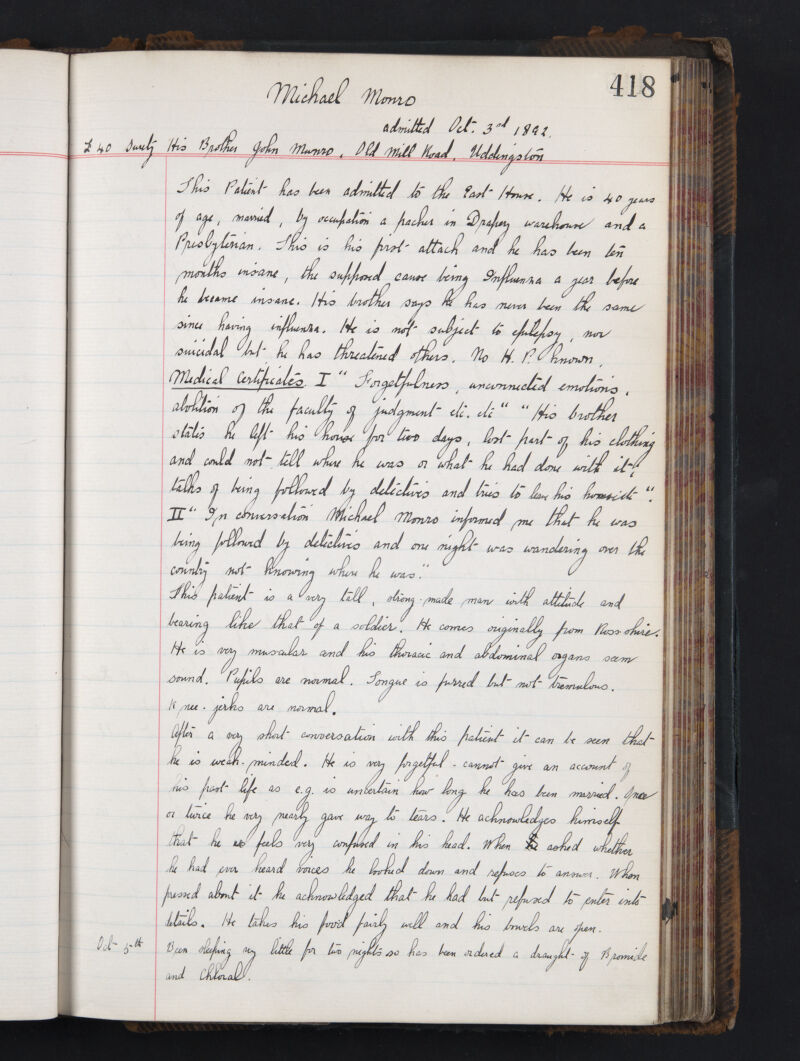 418
Michael Monro
admitted Oct. 3rd 1892.
£40 Surety His Brother John Munro, Old Mill Road, Uddingston
This Patient has been admitted to the East House. He is 40 years
of age, married, by occupation a packer in Drapery warehouse and a
Presbyterian. This is his first attack and he has been ten
months insane, the supposed cause being Influenza a year before
he became insane. His brother says he has never been the same
since having influenza. He is not subject to epilepsy, nor
suicidal but he has threatened others. No H. P. known.
Medical Certificates. I "Forgetfulness, unconnected emotions,
abolition of the faculty of judgment etc. etc" "His brother
states he left his house for two days, lost part of his clothing
and could not tell where he was or what he had done with it"
talks of being followed by detectives and tries to leave his house etc".
II "In conversation Michael Monro informed me that he was
being followed by detectives and one night was wandering over the
country not knowing where he was."
This patient is a very tall, strong-made man with attitude and
bearing like that of a soldier. He comes originally from Ross-shire.
He is very muscular and his thoracic and abdominal organs seem
sound. Pupils are normal. Tongue is furred but not tremulous.
Knee-jerks are normal.
After a very short conversation with this patient it can be seen that
he is weak-minded. He is very forgetful - cannot give an account of
his past life as e.g. is uncertain how long he has been married. Once
or twice he very nearly gave way to tears. He acknowledges himself
that he feels very confused in his head. When asked whether
he had ever heard voices he looked down and refuses to answer. When
pressed about it he acknowledged that he had but refused to enter into
details. He takes his food fairly well and his bowels are open.
Oct 5th Been sleeping very little for two nights so has been ordered a draught of Bromide
and Chloral.